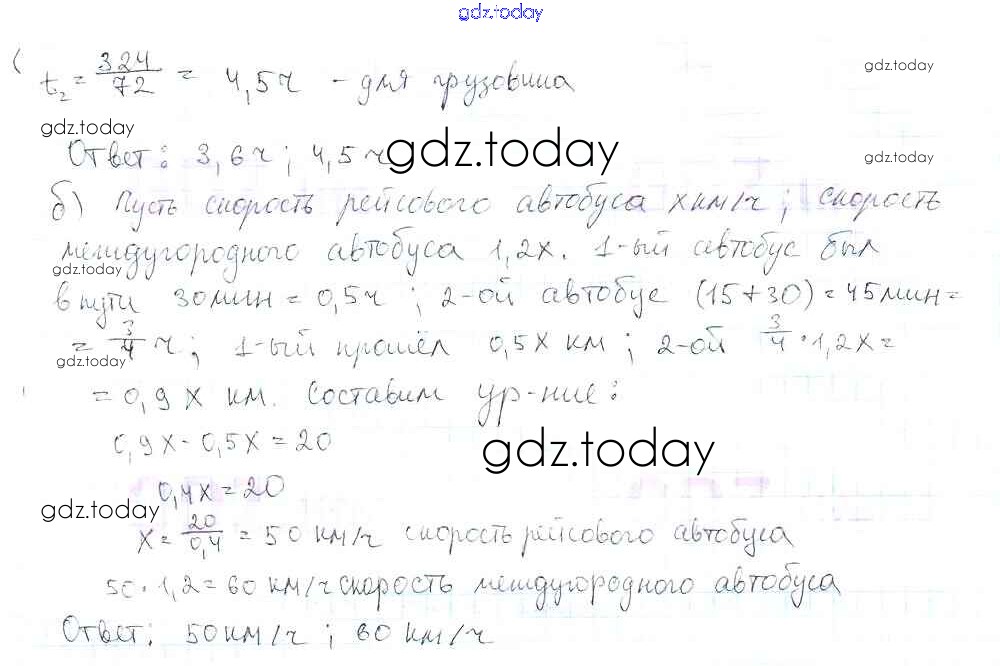 gdz.today
t₂ = 324/72 = 4,5ч - для грузовика
gdz.today
gdz.today
Ответ: 3,6ч; 4,5ч
gdz.today
gdz.today
б) Пусть скорость рейсового автобуса х км/ч; скорость
междугородного автобуса 1,2х. 1-ый автобус был
gdz.today
в пути 30мин = 0,5ч; 2-ой автобус (15+30) = 45мин =
= 3/4 ч; 1-ый прошёл 0,5х км; 2-ой 3/4 · 1,2х =
gdz.today
= 0,9х км. Составим ур-ние:
0,9х - 0,5х = 20
gdz.today
0,4х = 20
gdz.today
х = 20/0,4 = 50 км/ч скорость рейсового автобуса
50 · 1,2 = 60 км/ч скорость междугородного автобуса
Ответ: 50км/ч; 60 км/ч